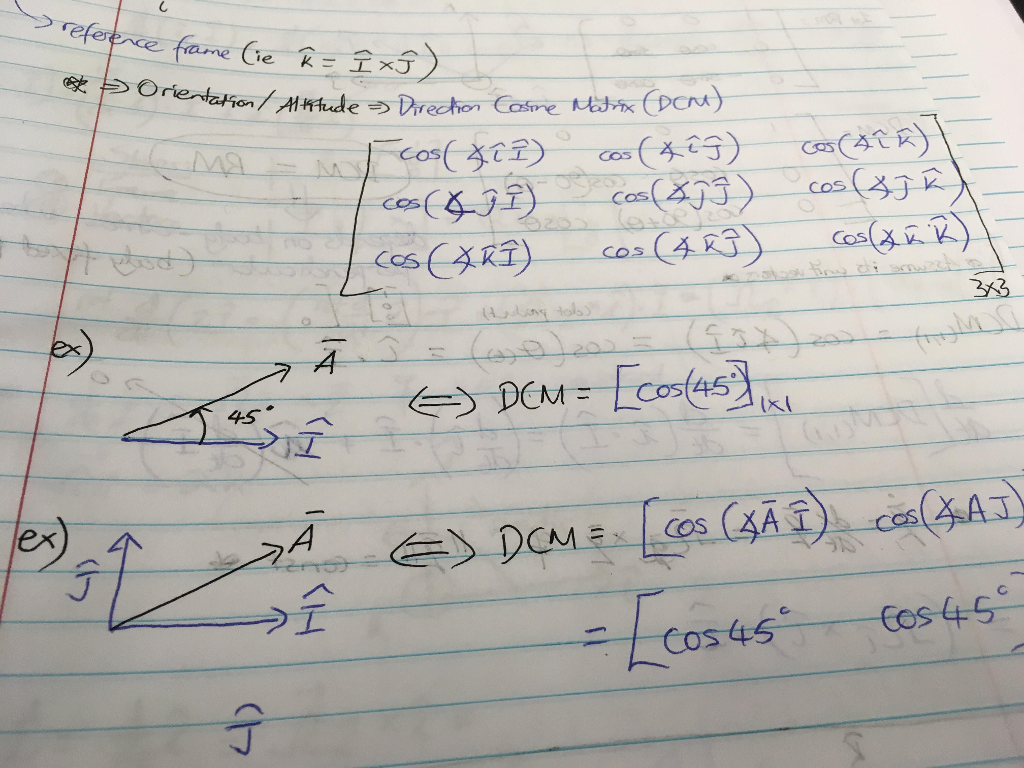 ↳ reference frame (ie K̂ = Î × Ĵ)
⇒ Orientation/Altitude ⇒ Direction Cosine Matrix (DCM)
[cos(∡ îÎ) cos(∡ îĴ) cos(∡ îK̂)
cos(∡ ĵÎ) cos(∡ ĵĴ) cos(∡ ĵK̂)
cos(∡ k̂Î) cos(∡ k̂Ĵ) cos(∡ k̂K̂)]
3x3
ex) Ā
45° Î ⇔ DCM = [cos(45°)] 1x1
ex) Ĵ Ā Î ⇔ DCM = [cos(∡ĀÎ) cos(∡AJ)
= [cos45° cos45°]
Ĵ